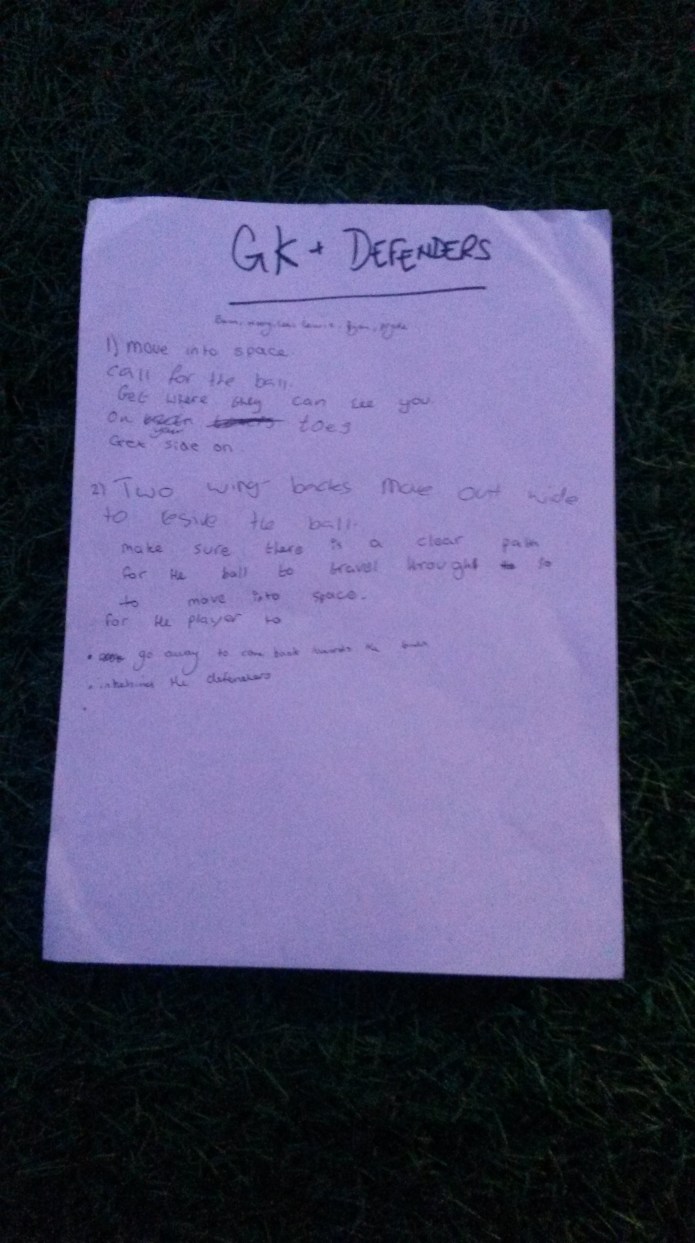 GK + DEFENDERS
1) move into space
call for the ball.
Get where they can see you
On your toes
Get side on.
2) Two wing backs move out wide
to resive the ball.
make sure there is a clear path
for the ball to travel throught so
to move into space.
for the player to
• go away to come back towards the ball
• behind the defenders
•